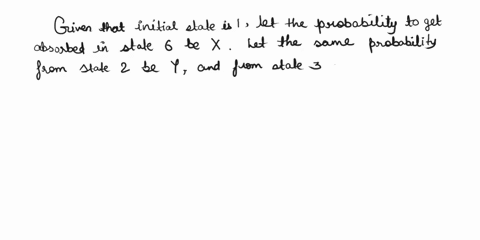 Given that initial state is 1, let the probability to get
absorbed in state 6 be X. Let the same probability
from state 2 be Y, and from state 3